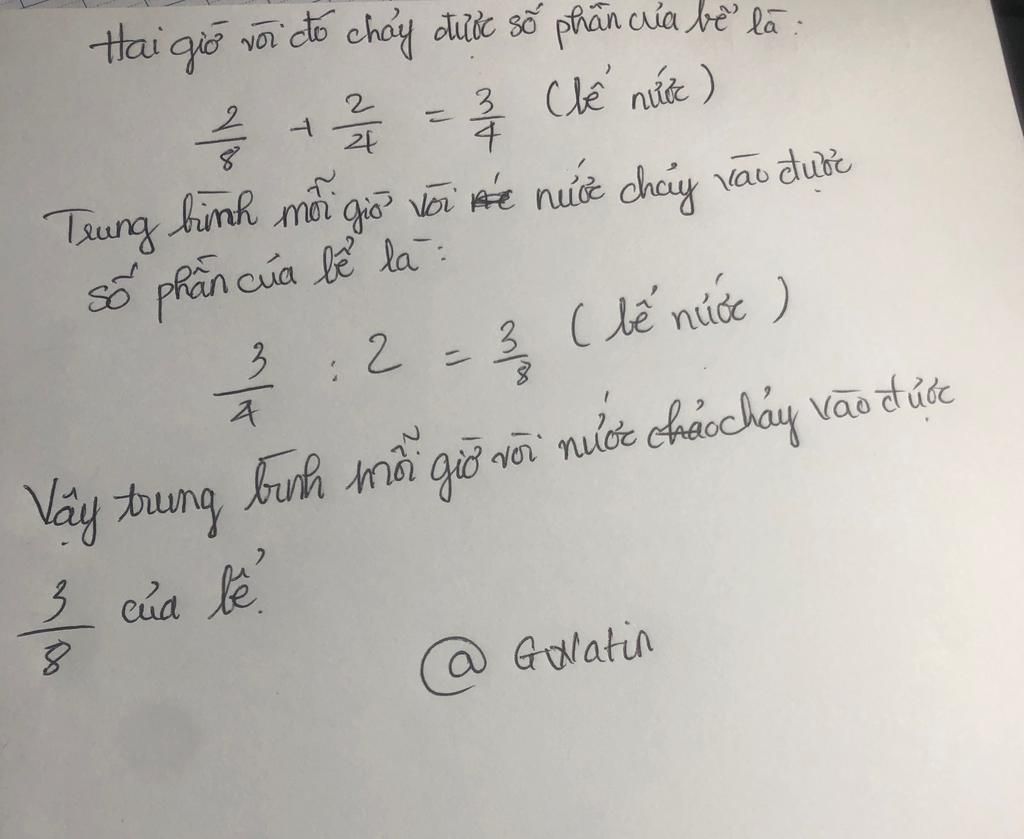 Hai giờ vòi đó chảy được số phần của bể là:
2/8 + 2/4 = 3/4 (bể nước)
Trung bình mỗi giờ vòi nước chảy vào được
số phần của bể là:
3/4 : 2 = 3/8 (bể nước)
Vậy trung bình mỗi giờ vòi nước chảy vào được
3/8 của bể.
@